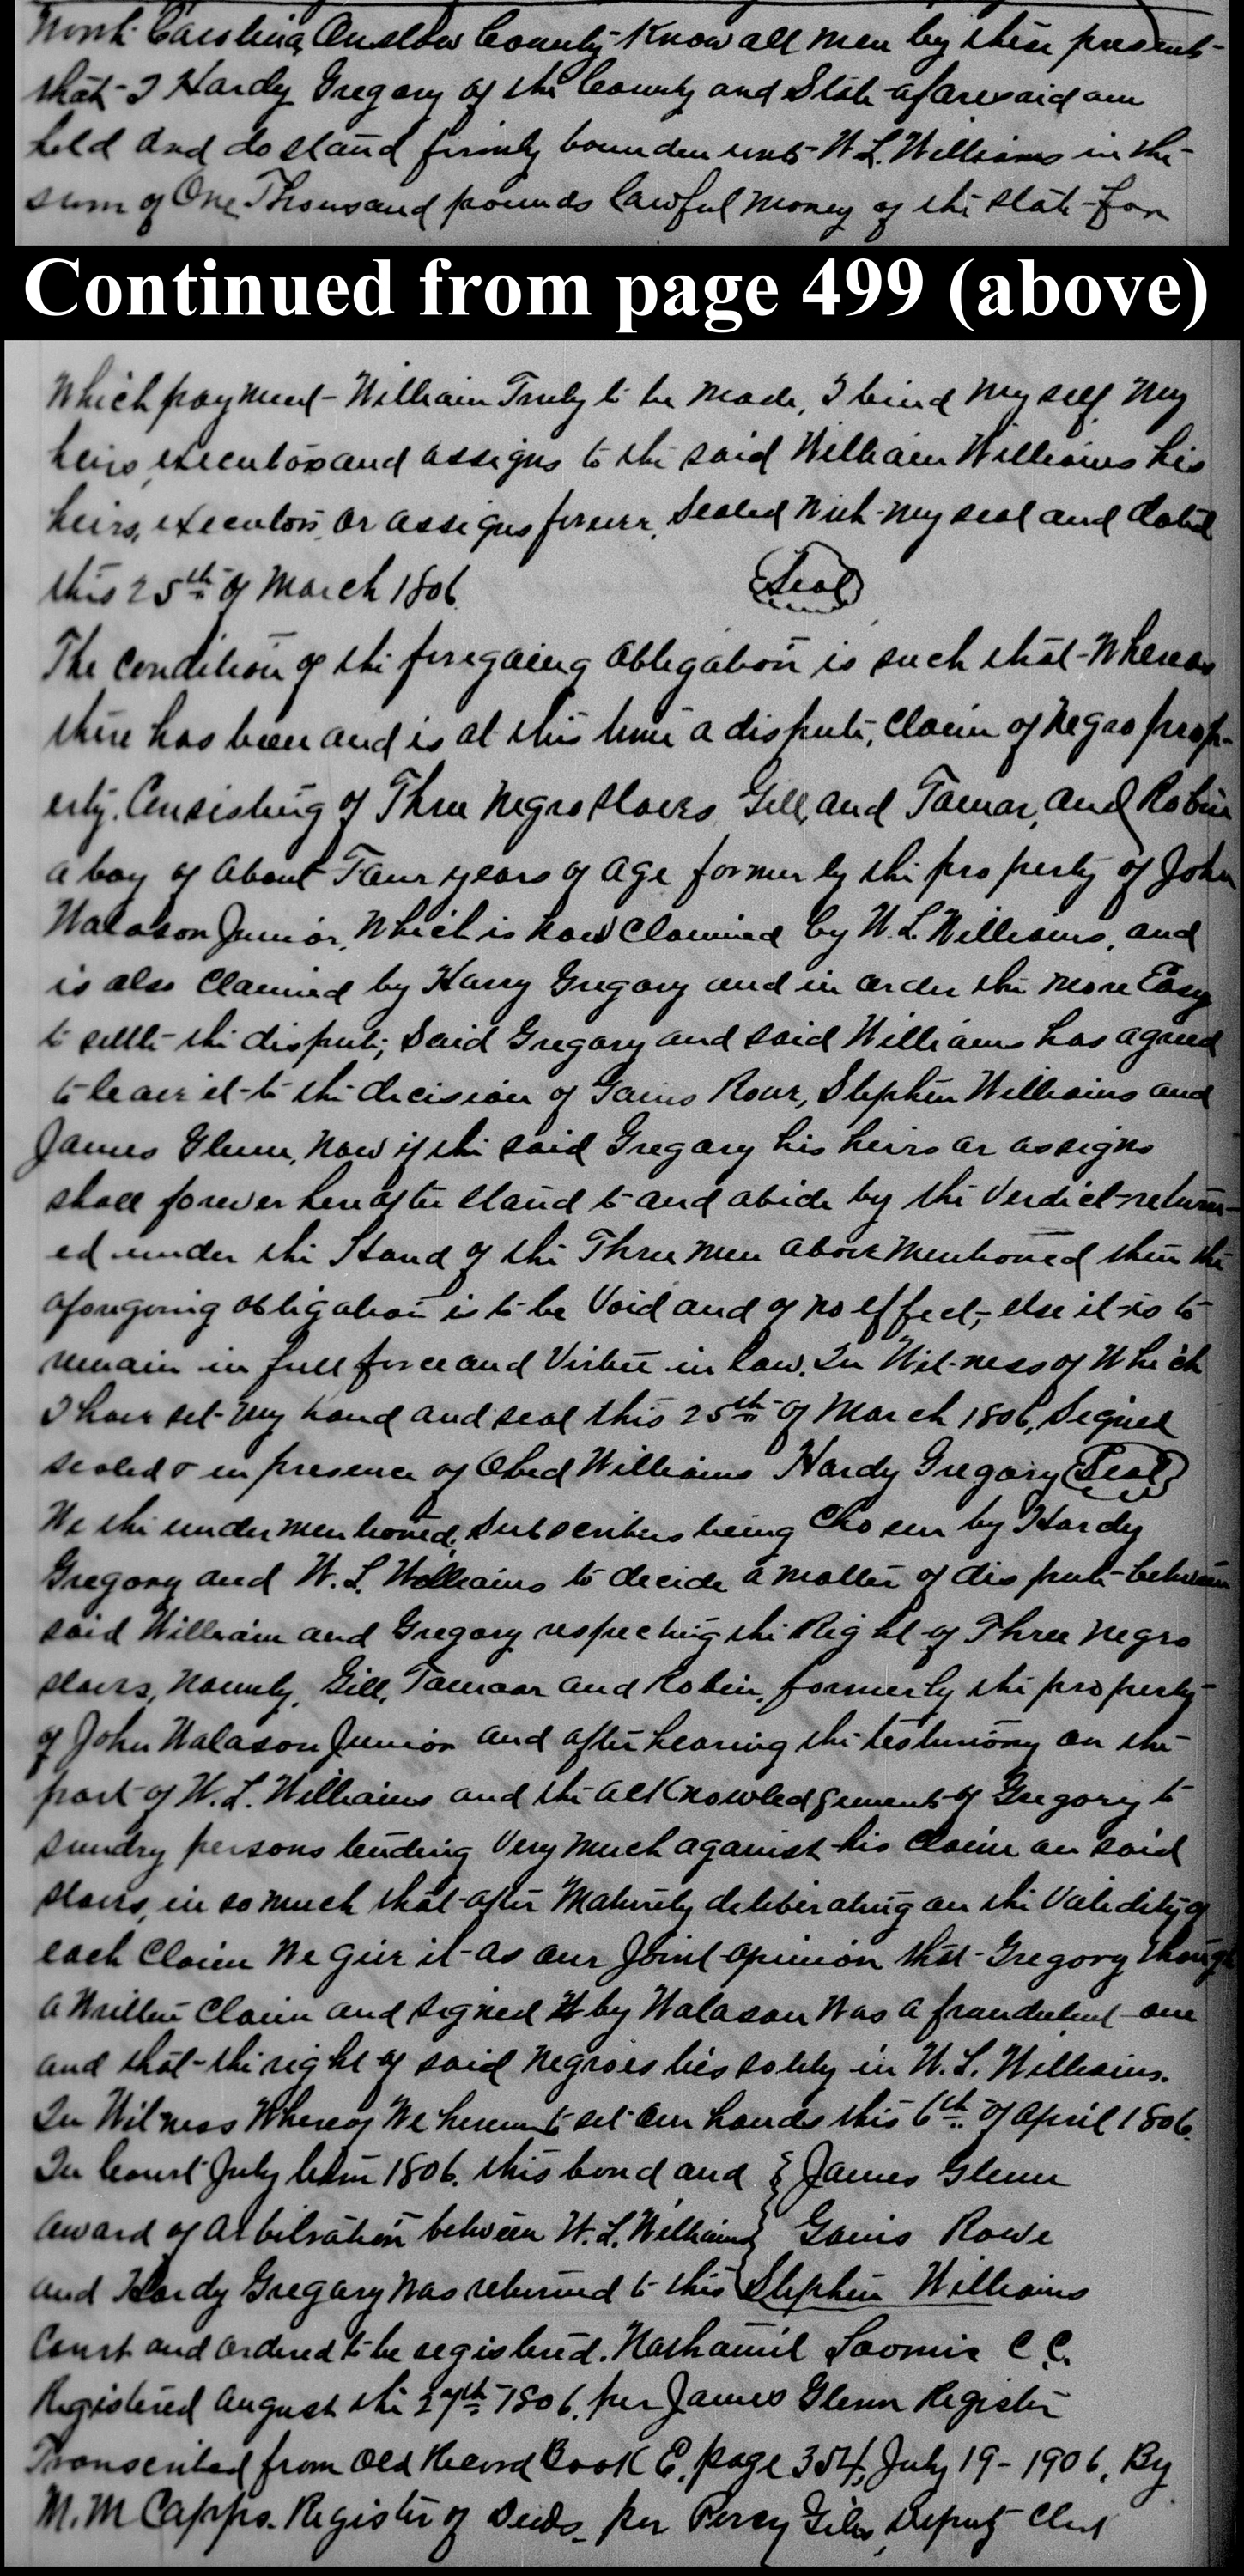 North Carolina, Onslow County - Know all men by these present-
that - I Hardy Gregory of the County and State aforesaid am
held and do stand firmly bounden unto W. L. Williams in the
sum of One Thousand pounds lawful money of the state - for
Continued from page 499 (above)
Which payment - William Truly to be made, I bind my self, my
heirs, executors and assigns to the said William Williams his
heirs, executors, or assigns forever, Sealed with my seal and dated
this 25th of March 1806. (Seal)
The condition of the foregoing obligation is such that - Whereas
there has been and is at this time a dispute, claim of negro prop-
erty, Consisting of Three negro slaves Gill, and Tamar, and Robin
a boy of about Four years of age formerly the property of John
Walason Junior, Which is now claimed by W. L. Williams, and
is also claimed by Harry Gregory and in order the more Easy
to settle - the dispute, Said Gregory and said Williams has agreed
to leave it - to the decision of Gains Rowe, Stephen Williams and
James Glenn, now if the said Gregary his heirs or assigns
shall forever hereafter stand to and abide by the Verdict - return-
ed under the Hand of the Three men above mentioned then the
aforegoing obligation is to be Void and of no effect, else it is to
remain in full force and Virtue in law. In Wit-ness of Which
I have set - my hand and seal this 25th of March 1806, Signed
sealed & in presence of Obed Williams Hardy Gregory (Seal)
We the under mentioned, Subscribers being Chosen by Hardy
Gregory and W. L. Williams to decide a matter of dispute - between
said William and Gregory respecting the Right of Three negro
slaves, namely, Gill, Tamaar and Robin, formerly the property
of John Walason Junior and after hearing the testimony on the
part of W. L. Williams and the acknowledgements of Gregory to
sundry persons tending Very much against his claim on said
slaves, in so much that - after Maturely deliberating on the Validity of
each Claim We give it - as our Joint opinion that - Gregory though
a Written Claim and signed by Walason Was a fraudulent one
and that - the right of said negroes lies solely in W. L. Williams.
In Witness Whereof We hereunto set our hands this 6th of April 1806.
In Court July term 1806. this bond and } James Glenn
award of arbitration between W. L. Williams } Gains Rowe
and Hardy Gregary was returned to this } Stephen Williams
Court and ordered to be registered. Nathaniel Loomis C.C.
Registered August the 27th 1806. per James Glenn Register
Transcribed from Old Record Book E, page 354, July 19 - 1906, By
M. M Capps. Register of Deeds, per Percy Giles, Deputy Clerk